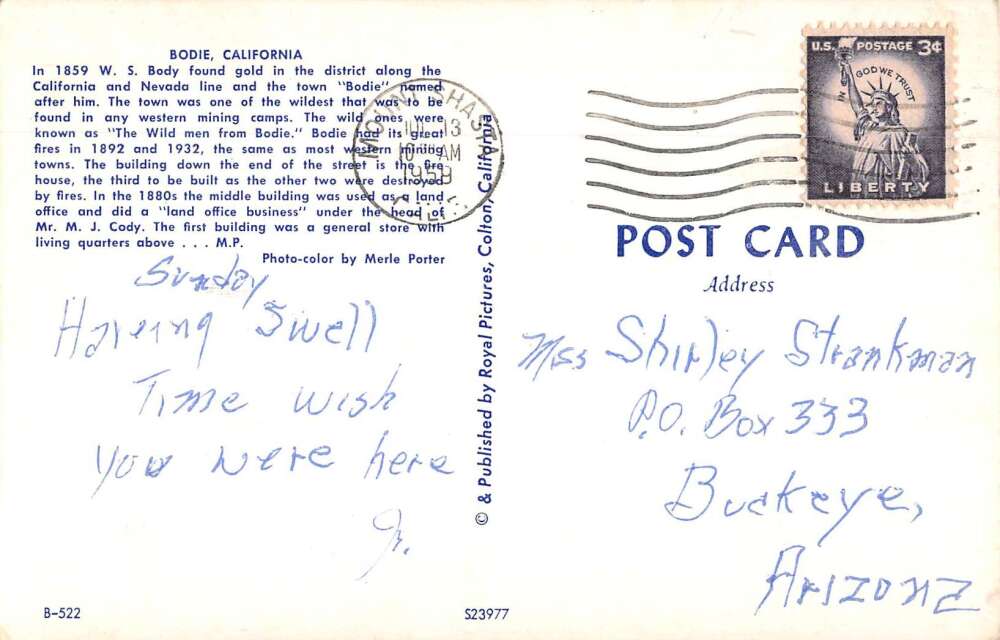 BODIE, CALIFORNIA
In 1859 W. S. Body found gold in the district along the
California and Nevada line and the town "Bodie" named
after him. The town was one of the wildest that was to be
found in any western mining camps. The wild ones were
known as "The Wild men from Bodie." Bodie had its great
fires in 1892 and 1932, the same as most western mining
towns. The building down the end of the street is the fire
house, the third to be built as the other two were destroyed
by fires. In the 1880s the middle building was used as a land
office and did a "land office business" under the head of
Mr. M. J. Cody. The first building was a general store with
living quarters above . . . M.P.
Photo-color by Merle Porter
Sunday
Haveing Swell
Time wish
you were here
Jr.
B-522
MOUNT SHASTA
JUL 13
10 AM
1959
CALIF.
© & Published by Royal Pictures, Colton, California
S23977
U.S. POSTAGE 3¢
IN GOD WE TRUST
LIBERTY
POST CARD
Address
Miss Shirley Strankman
P.O. Box 333
Buckeye,
Arizona